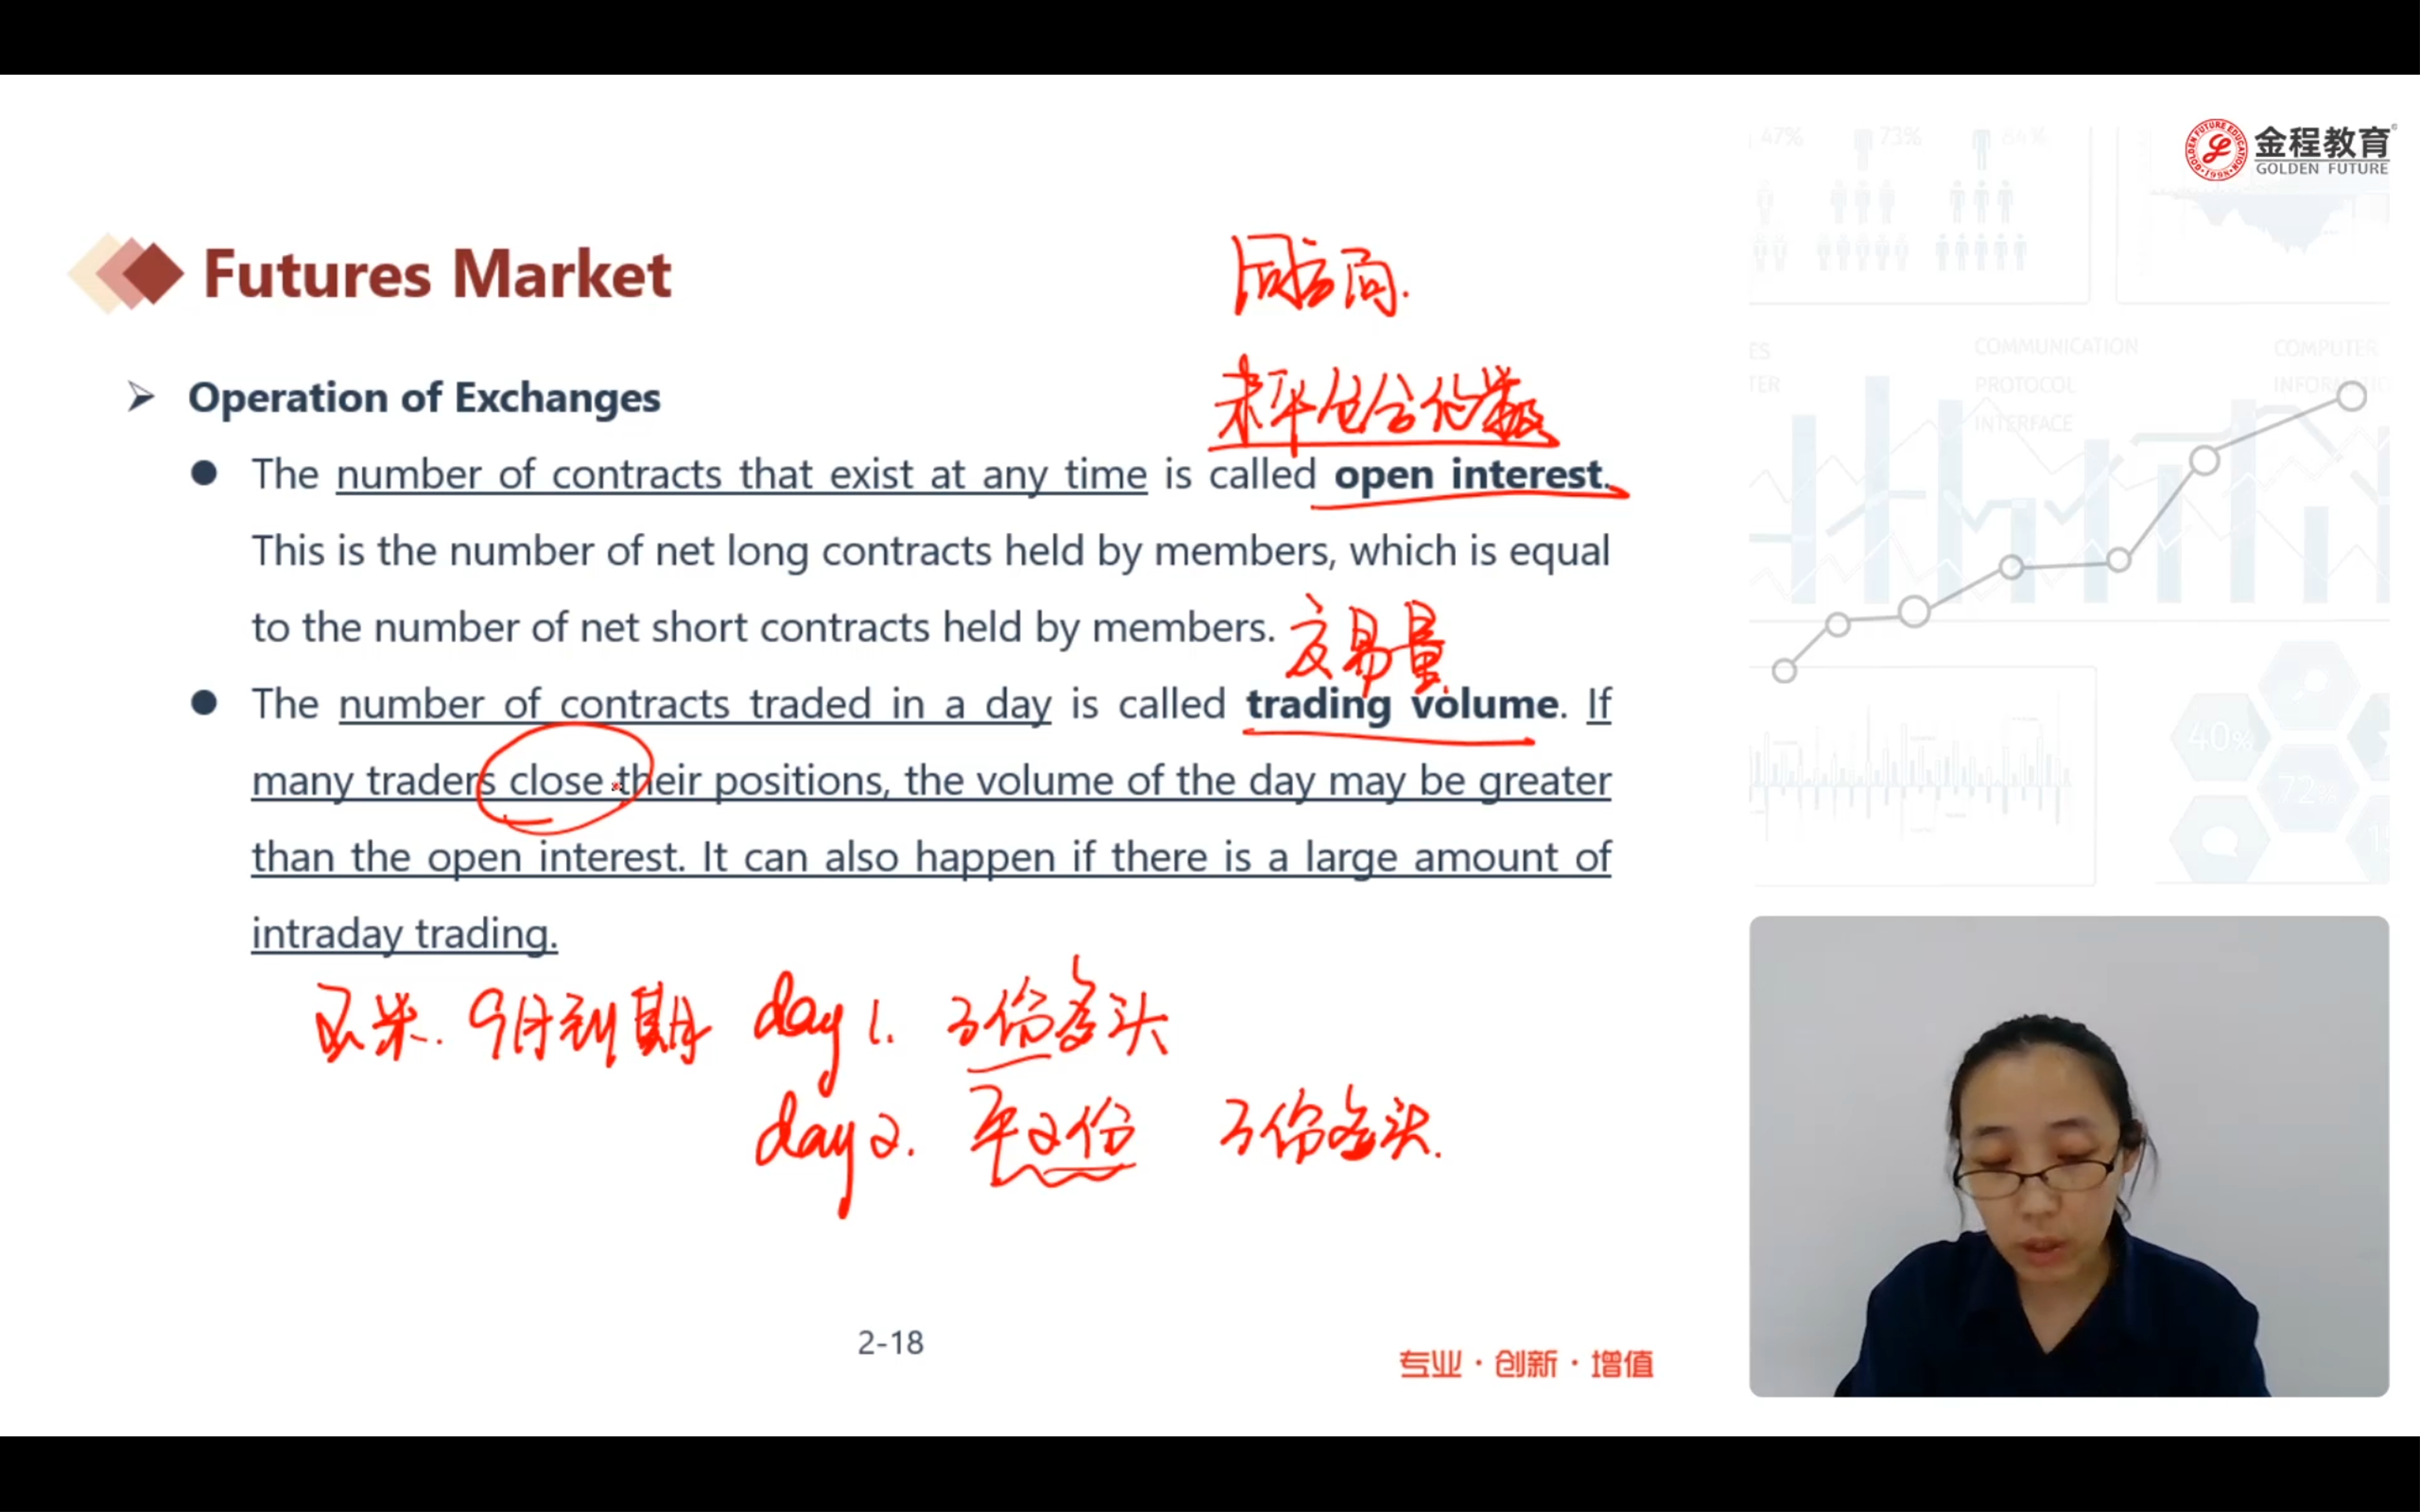 金程教育
GOLDEN FUTURE
Futures Market
同方向.
Operation of Exchanges
未平仓合约数
The number of contracts that exist at any time is called open interest.
This is the number of net long contracts held by members, which is equal
to the number of net short contracts held by members.
交易量
The number of contracts traded in a day is called trading volume. If
many traders close their positions, the volume of the day may be greater
than the open interest. It can also happen if there is a large amount of
intraday trading.
玉米. 9月到期 day 1. 3份多头
day 2. 平2份 3份多头.
2-18
专业·创新·增值
47% 73% 84%
COMMUNICATION
PROTOCOL
INTERFACE
COMPUTER
40%
72%